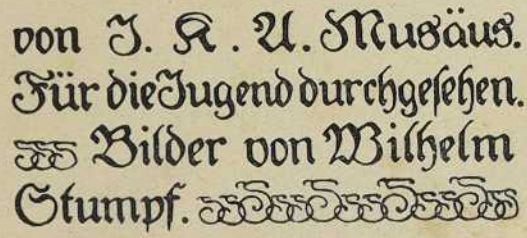 von J. K. A. Musäus.
Für die Jugend durchgesehen.
Bilder von Wilhelm
Stumpf.